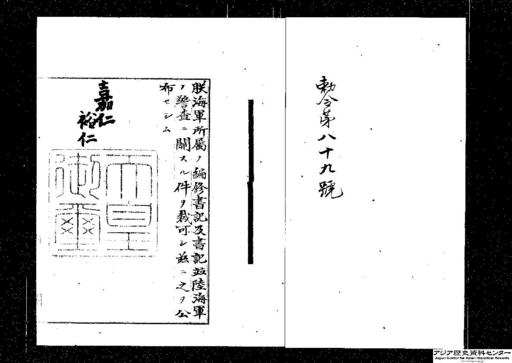 勅令第八十九號
朕海軍所屬ノ編修書記及書記並陸海軍
ノ警査ニ關スル件ヲ裁可シ茲ニ之ヲ公
布セシム
嘉仁
裕仁
天皇
御璽
アジア歴史資料センター
Japan Center for Asian Historical Records